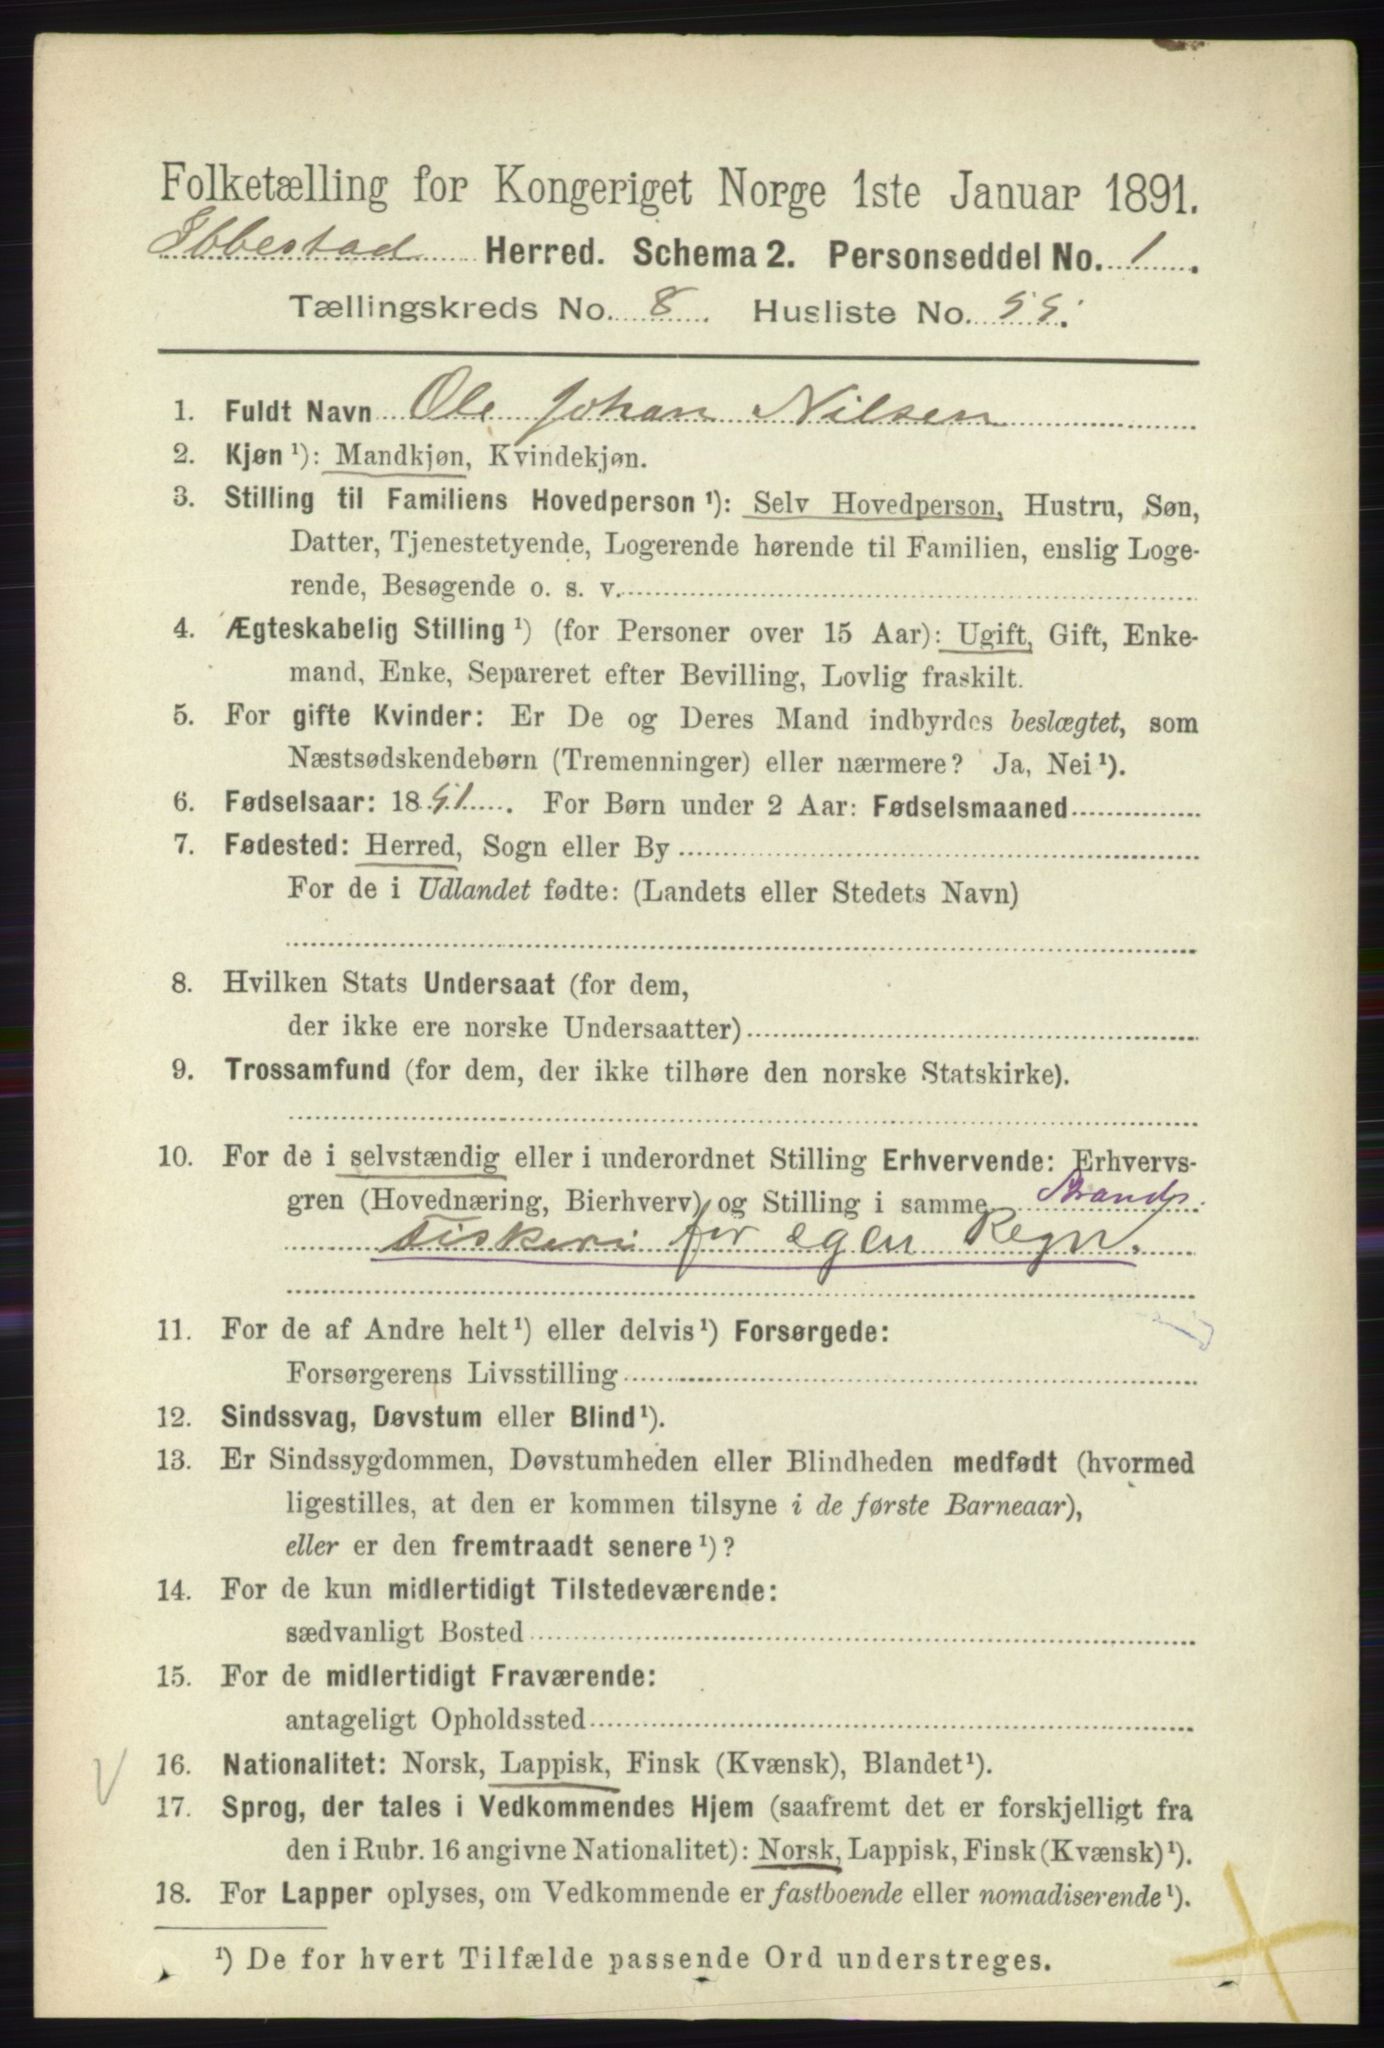 Folketælling for Kongeriget Norge 1ste Januar 1891.
Ibbestad Herred. Schema 2. Personseddel No. 1.
Tællingskreds No. 8. Husliste No. 55.
1. Fuldt Navn Ole Johan Nilsen
2. Kjøn ¹): Mandkjøn, Kvindekjøn.
3. Stilling til Familiens Hovedperson ¹): Selv Hovedperson, Hustru, Søn,
Datter, Tjenestetyende, Logerende hørende til Familien, enslig Loge-
rende, Besøgende o. s. v.
4. Ægteskabelig Stilling ¹) (for Personer over 15 Aar): Ugift, Gift, Enke-
mand, Enke, Separeret efter Bevilling, Lovlig fraskilt.
5. For gifte Kvinder: Er De og Deres Mand indbyrdes beslægtet, som
Næstsødskendebørn (Tremenninger) eller nærmere? Ja, Nei ¹).
6. Fødselsaar: 1851. For Børn under 2 Aar: Fødselsmaaned
7. Fødested: Herred, Sogn eller By
For de i Udlandet fødte: (Landets eller Stedets Navn)
8. Hvilken Stats Undersaat (for dem,
der ikke ere norske Undersaatter)
9. Trossamfund (for dem, der ikke tilhøre den norske Statskirke).
10. For de i selvstændig eller i underordnet Stilling Erhvervende: Erhvervs-
gren (Hovednæring, Bierhverv) og Stilling i samme Strands.
Fiskeri for egen Regn.
11. For de af Andre helt ¹) eller delvis ¹) Forsørgede:
Forsørgerens Livsstilling
12. Sindssvag, Døvstum eller Blind ¹).
13. Er Sindssygdommen, Døvstumheden eller Blindheden medfødt (hvormed
ligestilles, at den er kommen tilsyne i de første Barneaar),
eller er den fremtraadt senere ¹)?
14. For de kun midlertidigt Tilstedeværende:
sædvanligt Bosted
15. For de midlertidigt Fraværende:
antageligt Opholdssted
16. Nationalitet: Norsk, Lappisk, Finsk (Kvænsk), Blandet ¹).
17. Sprog, der tales i Vedkommendes Hjem (saafremt det er forskjelligt fra
den i Rubr. 16 angivne Nationalitet): Norsk, Lappisk, Finsk (Kvænsk) ¹).
18. For Lapper oplyses, om Vedkommende er fastboende eller nomadiserende ¹).
¹) De for hvert Tilfælde passende Ord understreges.